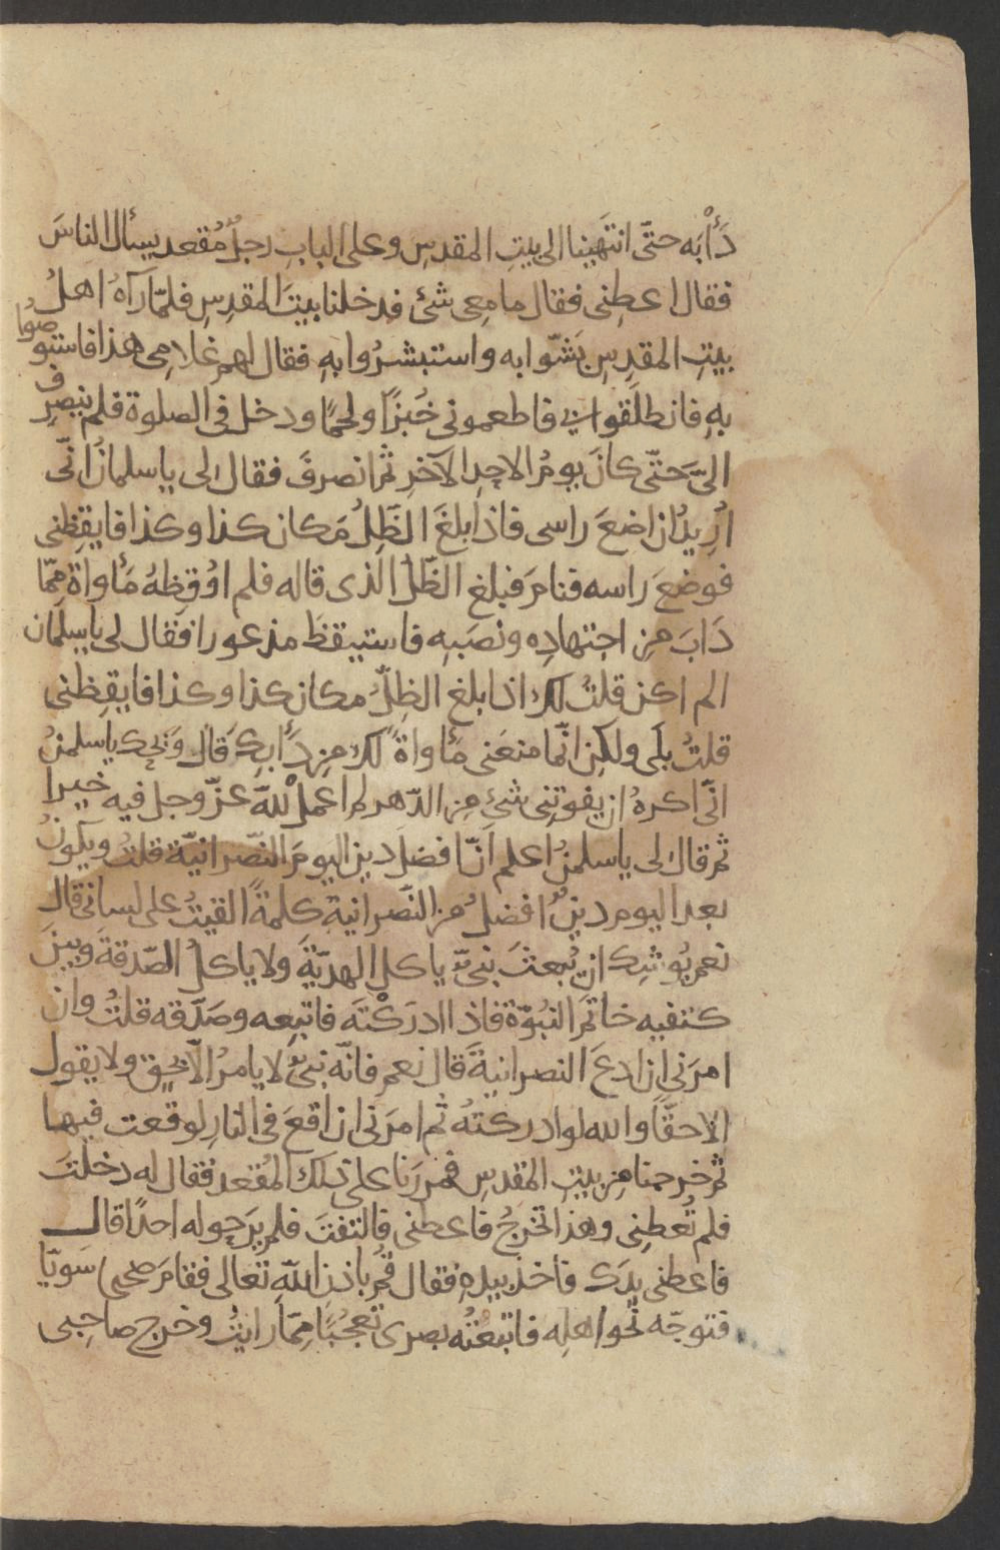 دَأْبَه حتّى انتَهينا الى بيتِ المقدسِ وعلى البابِ رجلٌ مُقعد يسأل الناسَ
فقال اعطِنى فقال ما معِى شئ فدخلنا بيتَ المقدِسِ فلمّا رآهُ اهلُ
بيتِ المقدِسِ بَشّوا به واستبشرُوا بهِ فقال لهم غلامِى هذا فاستوصُوا
بهِ فانطلَقوا بى فاطعمونى خُبزًا ولحمًا ودخل فى الصلوة فلم ينصرِف
الىّ حَتّى كانَ يومُ الاحِدِ الآخرِ ثم انصرفَ فقال لى يا سلمانُ انّى
اُرِيدُ ان اضعَ راسى فاذا بلغَ الظِلُّ مَكان كذا وكذا فايقِظنى
فوضعَ راسه فنامَ فبلغ الظّلُّ الذى قاله فلم اوُقِظهُ مَأواةً مِمّا
دَابَ مِن اجتهادِه ونصَبِه فاستيقظَ مذعورا فقال لى يا سلمان
الم اكن قلتُ لك اذا بلغ الظِلُّ مكان كذا وكذا فايقِظنى
قلتُ بلَى ولكِن انّما منعَنى مأواةً لك مِن دَأبِكَ قال وَيحك يا سلمنُ
انّى اكرهُ ان يفوتنِى شئٌ مِن الدّهر لم اعملْ للهِ عزّ وجل فيه خيرا
ثم قال لى يا سلمنُ اعلم انّ افضلَ دين اليومَ النّصرانيّة قلتُ ويكونُ
بعد اليوم دينٌ افضلُ من النّصرانيةِ كلمةً القيتُ على لسانى قال
نعم يُوشِك ان يُبعثَ نبىٌّ ياكل الهديّةَ ولا ياكلُ الصّدقةَ وبين
كتفيه خاتمَ النبُوّة فاذا ادرَكْتَه فاتبعِه وصَدّقه قلتُ وان
امرَنى ان ادعَ النصرانيةَ قال نعم فانّه نبىٌّ لا يامرُ الّا بحق ولا يقول
الا حقًّا والله لو ادركتهُ ثم امرَنى ان اقعَ فى النارِ لوقعت فيها
ثم خرجنا مِن بيتِ المقدسِ فمررَنا على ذلك المُقعد فقال له دخلتَ
فلم تُعطِنى وهذا تخرجُ فاعطِنى فالتفتَ فلم يَرَ حوله احدًا قال
فاعطِنى يدَك فأخذ بيدهِ فقال قُم باذنِ اللهِ تعالى فقامَ صحيحًا سَويّا
فتوجّه نحو اهلِه فاتبعْتُه بصرى تعجبُّا مِمّا رايتُ وخرج صاحِبى